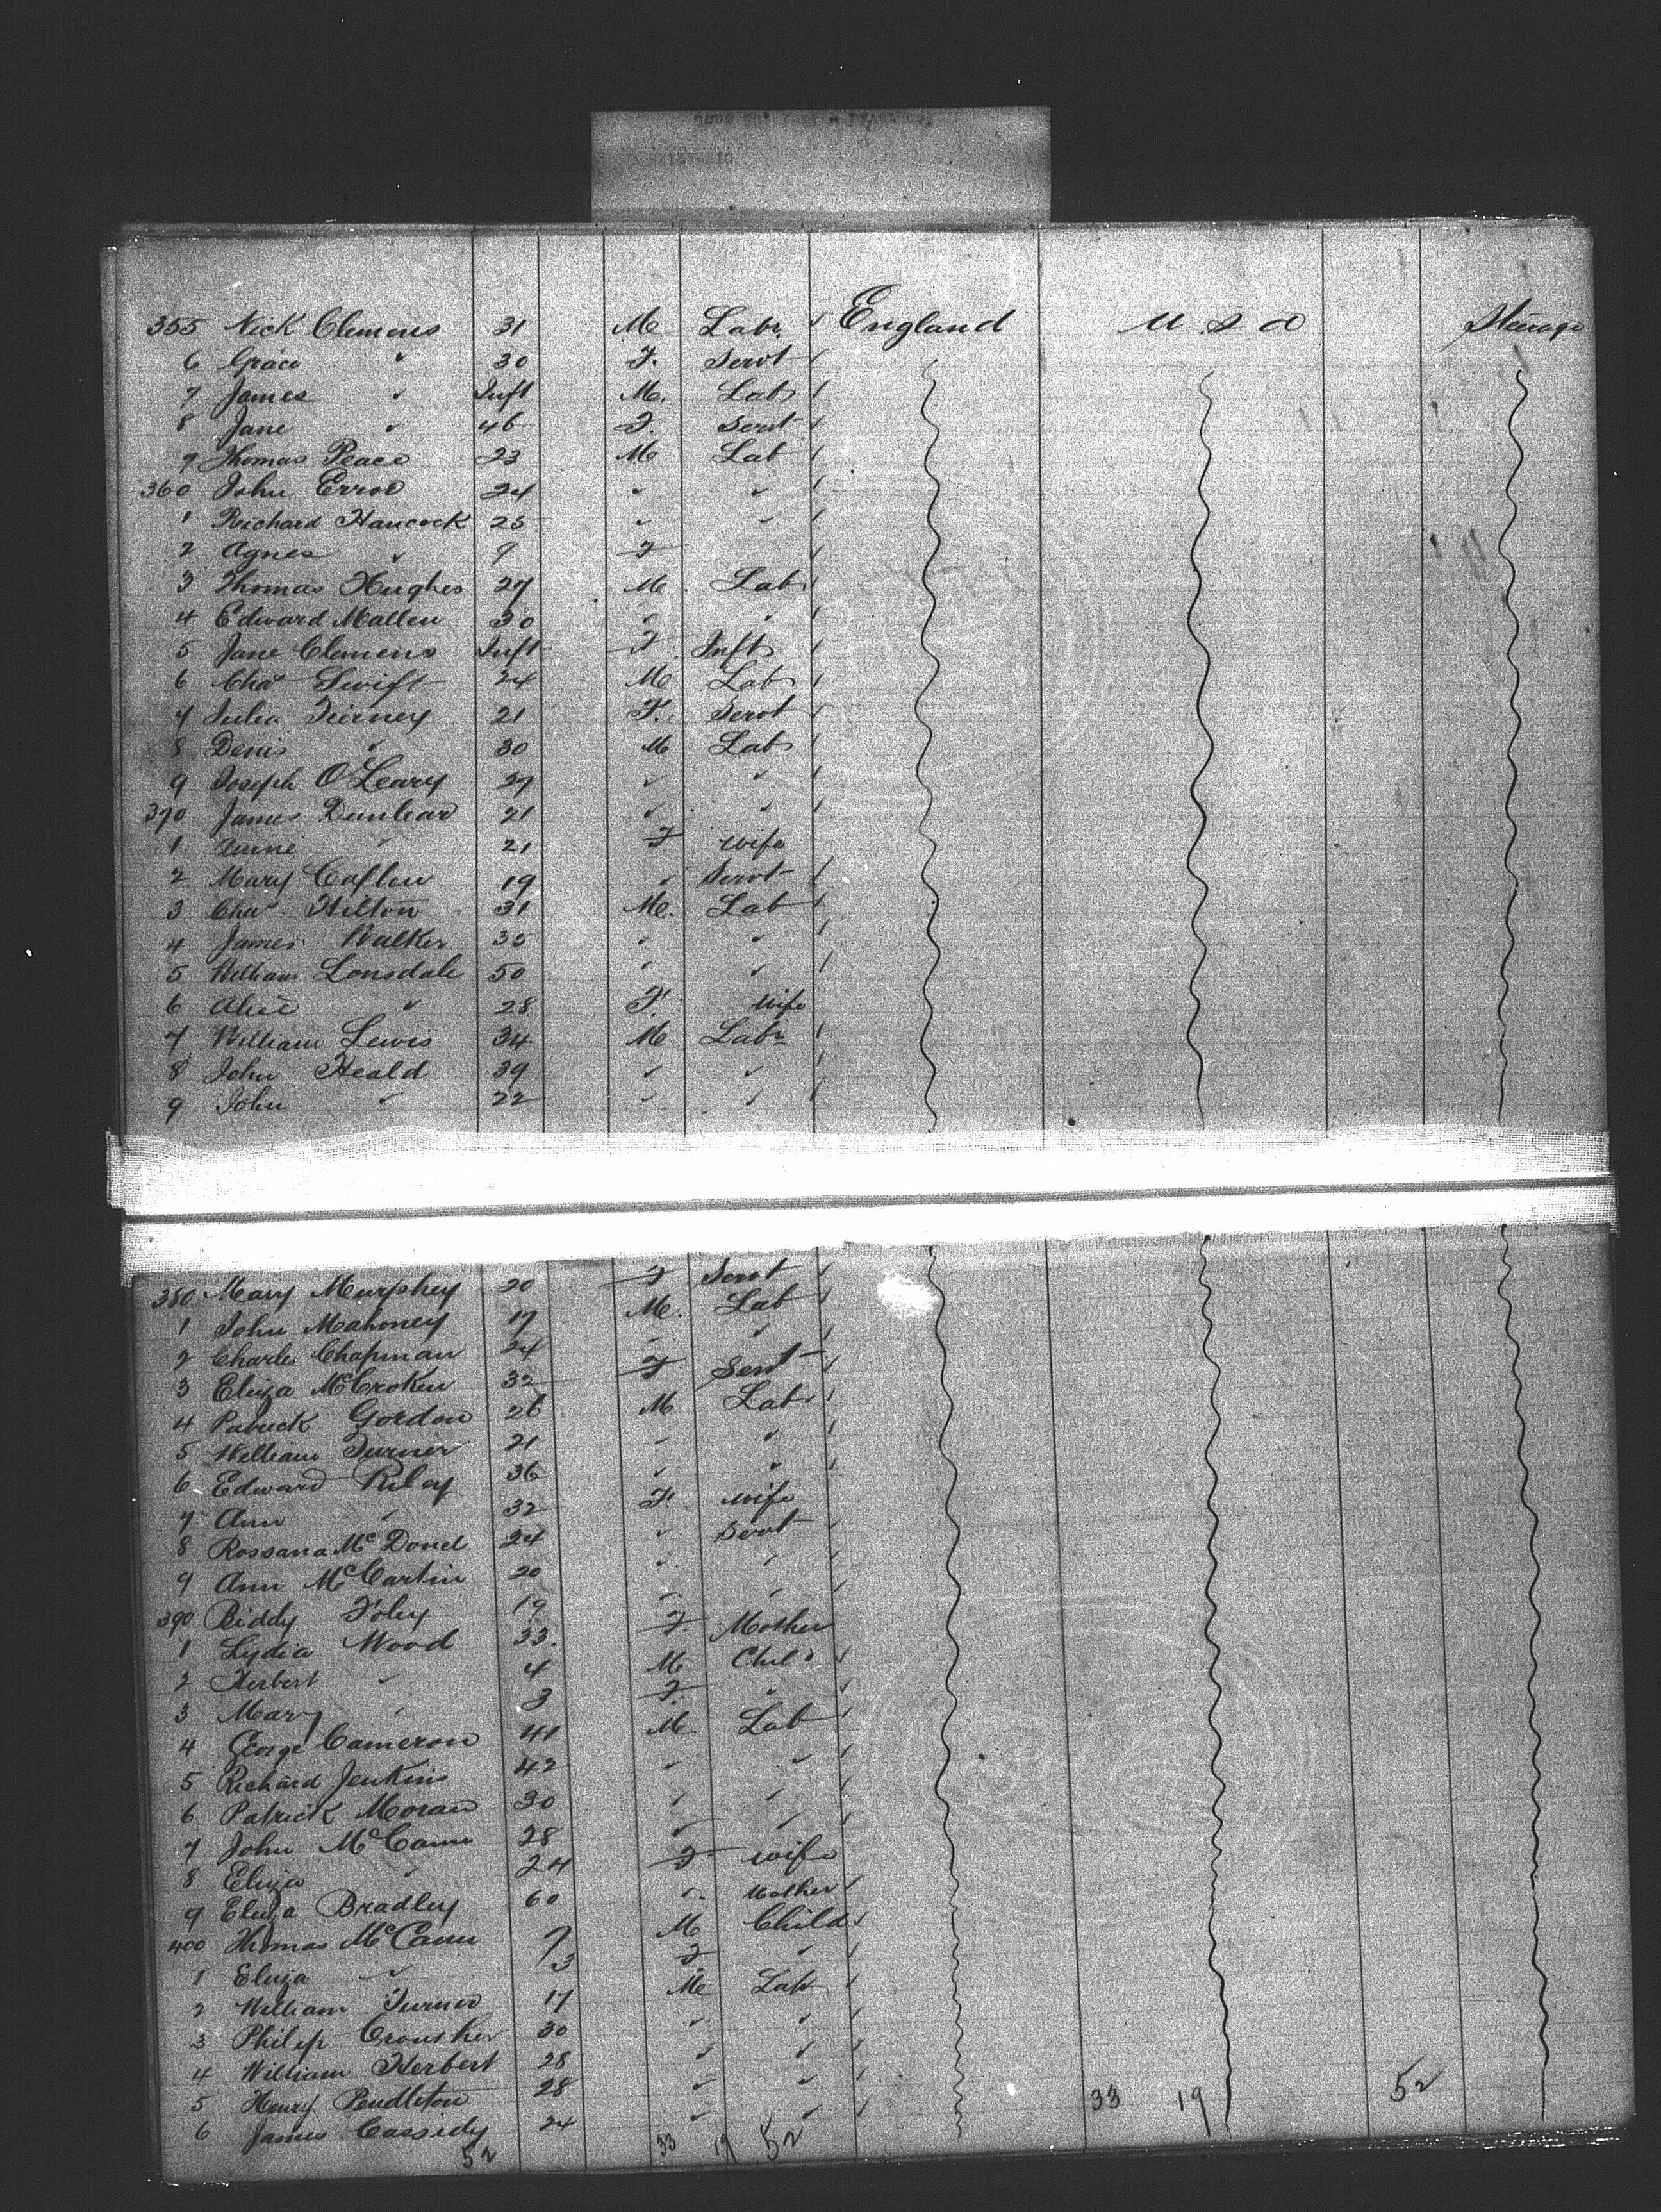 355 Nick Clemens 31 M Labr. England U S A Steerage
6 Grace " 30 F. Servt
7 James " Inft M. Lab
8 Jane " 46 F. Servt
9 Thomas Peace 23 M Lab
360 John 24 " "
1 Richard Hancock 25 " "
2 Agnes " 9 F
3 Thomas Hughes 27 M Lab
4 Edward Mallen 30 " "
5 Jane Clemens Inft F Inft
6 Chas Swift 24 M Lab
7 Julia Tierney 21 F. Servt
8 Denis " 30 M Lab
9 Joseph O'Leary 27 " "
370 James Dunbar 21 " "
1 Annie " 21 F wife
2 Mary 19 " Servt
3 Chas. Hilton 31 M. Lab
4 James Walker 35 " "
5 William Lonsdale 50 " "
6 Alice " 28 F. wife
7 William Lewis 34 M Labr
8 John Heald 39 " "
9 John " 22 " "
380 Mary Murphey 20 F Servt
1 John Mahoney 19 M. Lab
2 Charles Chapman 24 " "
3 Eliza McCroken 32 F Servt
4 Patrick Gordon 26 M Lab
5 William Turner 21 " "
6 Edward Riley 36 " "
7 Ann " 32 F wife
8 Rossana McDonel 24 " Servt
9 Ann McCartin 20 " "
390 Biddy Foley 19 " "
1 Lydia Wood 33. F Mother
2 Herbert " 4 M Child
3 Mary " 3 F. "
4 George Cameron 41 M Lab
5 Richard Jenkins 42 " "
6 Patrick Moran 30 " "
7 John McCann 28 " "
8 Eliza " 24 F wife
9 Eliza Bradley 60 " Mother
400 Thomas McCann 7 M Child
1 Eliza " 3 F "
2 William Turner 17 M Lab
3 Philip 30 " "
4 William Herbert 28 " "
5 Henry Pendleton 28 " " 33 19 52
6 James Cassidy 24 " "
52 33 19 52